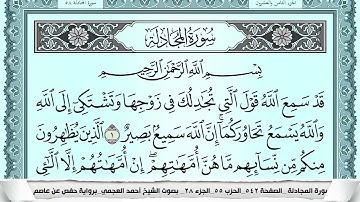 الجزء الثامن والعشرون
سورة المجادلة
سُورَةُ المُجَادلَةِ
بِسْمِ ٱللَّهِ ٱلرَّحْمَٰنِ ٱلرَّحِيمِ
قَدْ سَمِعَ ٱللَّهُ قَوْلَ ٱلَّتِي تُجَٰدِلُكَ فِي زَوْجِهَا وَتَشْتَكِيٓ إِلَى ٱللَّهِ
وَٱللَّهُ يَسْمَعُ تَحَاوُرَكُمَآ إِنَّ ٱللَّهَ سَمِيعُۢ بَصِيرٌ ١ ٱلَّذِينَ يُظَٰهِرُونَ
مِنكُم مِّن نِّسَآئِهِم مَّا هُنَّ أُمَّهَٰتِهِمْ إِنْ أُمَّهَٰتُهُمْ إِلَّا ٱلَّٰٓـِٔي
ورة المجادلة _ الصفحة ٥٤٢_ الحزب ٥٥_ الجزء ٢٨_ بصوت الشيخ احمد العجمي. برواية حفص عن عاصم